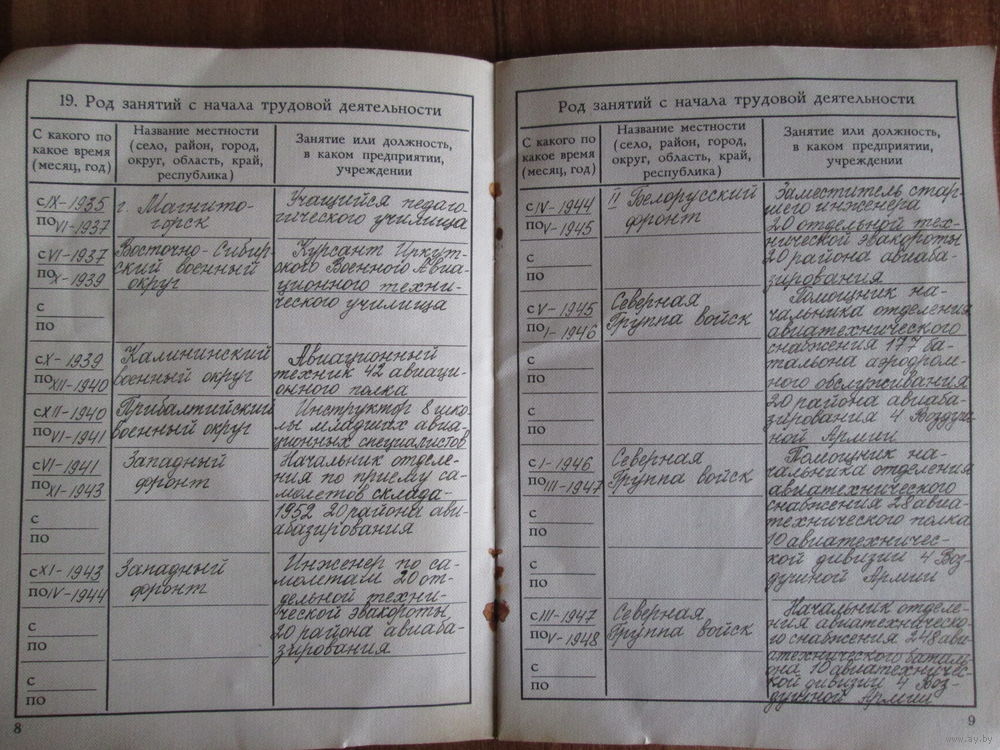 19. Род занятий с начала трудовой деятельности
С какого по
какое время
(месяц, год)
Название местности
(село, район, город,
округ, область, край,
республика)
Занятие или должность,
в каком предприятии,
учреждении
с IX-1935
по VI-1937
г. Магнито-
горск
Учащийся педаго-
гического училища
с VI-1937
по X-1939
Восточно-Сибир-
ский военный
округ
Курсант Иркут-
ского Военного Авиа-
ционного техни-
ческого училища
с
по
с X-1939
по XII-1940
Калининский
военный округ
Авиационный
техник 42 авиаци-
онного полка
с XII-1940
по VI-1941
Прибалтийский
военный округ
Инструктор 8 шко-
лы младших авиа-
ционных специалистов
с VI-1941
по XI-1943
Западный
фронт
Начальник отделе-
ния по приему са-
молетов склада-
1952 20 района ави-
абазирования
с
по
с XI-1943
по IV-1944
Западный
фронт
Инженер по са-
молетам 20 от-
дельной техни-
ческой эвакороты
20 района авиаба-
зирования
с
по
с
по
8
Род занятий с начала трудовой деятельности
С какого по
какое время
(месяц, год)
Название местности
(село, район, город,
округ, область, край,
республика)
Занятие или должность,
в каком предприятии,
учреждении
с IV-1944
по V-1945
II Белорусский
фронт
Заместитель стар-
шего инженера
20 отдельной тех-
нической эвакороты
20 района авиаба-
зирования
с
по
с V-1945
по I-1946
Северная
Группа войск
Помощник на-
чальника отделения
авиатехнического
снабжения 177 ба-
тальона аэродром-
ного обслуживания
20 района авиаба-
зирования 4 Воздуш-
ной Армии
с
по
с
по
с I-1946
по III-1947
Северная
Группа войск
Помощник на-
чальника отделения
авиатехнического
снабжения 28 авиа-
технического полка
10 авиатехничес-
кой дивизии 4 Воз-
душной Армии
с
по
с
по
с III-1947
по V-1948
Северная
Группа войск
Начальник отделе-
ния авиатехническо-
го снабжения 248 ави-
атехнического баталь-
она 10 авиатехничес-
кой дивизии 4 Воз-
душной Армии
с
по
9
www.ay.by